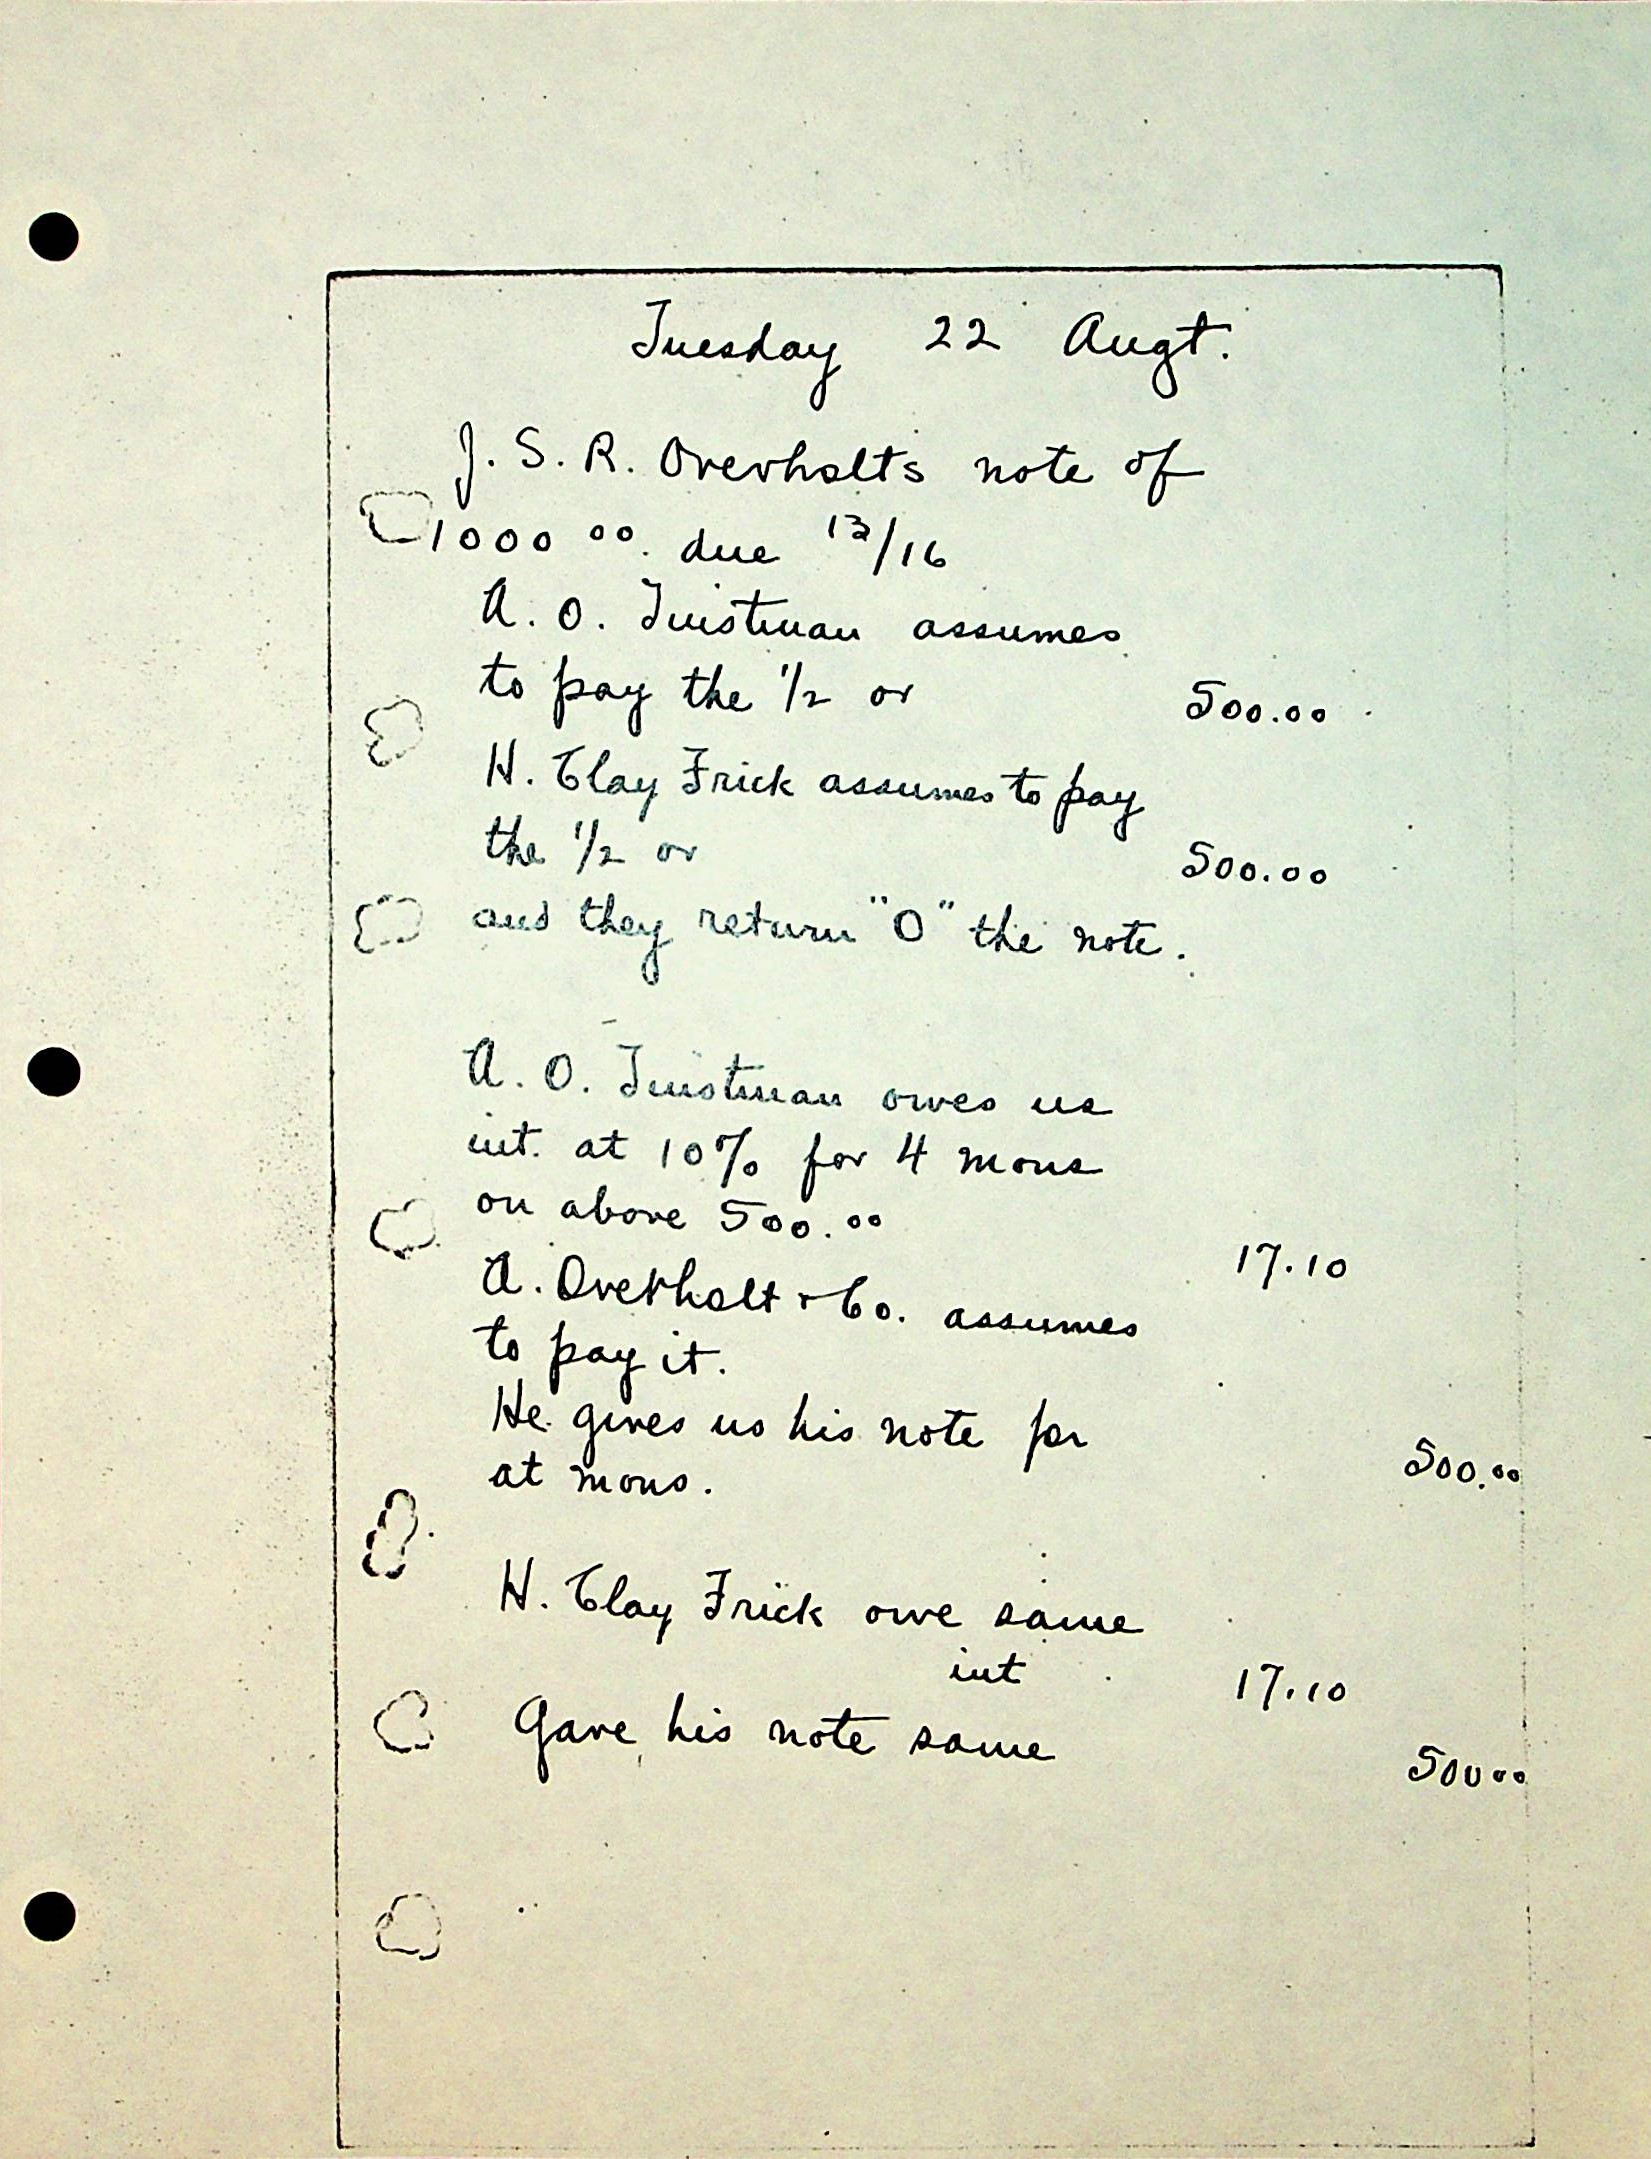 Tuesday 22 Augt.
J. S. R. Overholts note of
1000 00. due 13/16
A. O. Tinstman assumes
to pay the 1/2 or 500.00
H. Clay Frick assumes to pay
the 1/2 or 500.00
and they return "O" the note.
A. O. Tinstman owes us
int. at 10% for 4 mons
on above 500.00
17.10
A. Overholt & Co. assumes
to pay it.
He gives us his note for
at mons. 500.00
H. Clay Frick owe same
int 17.10
Gave his note same
500 00